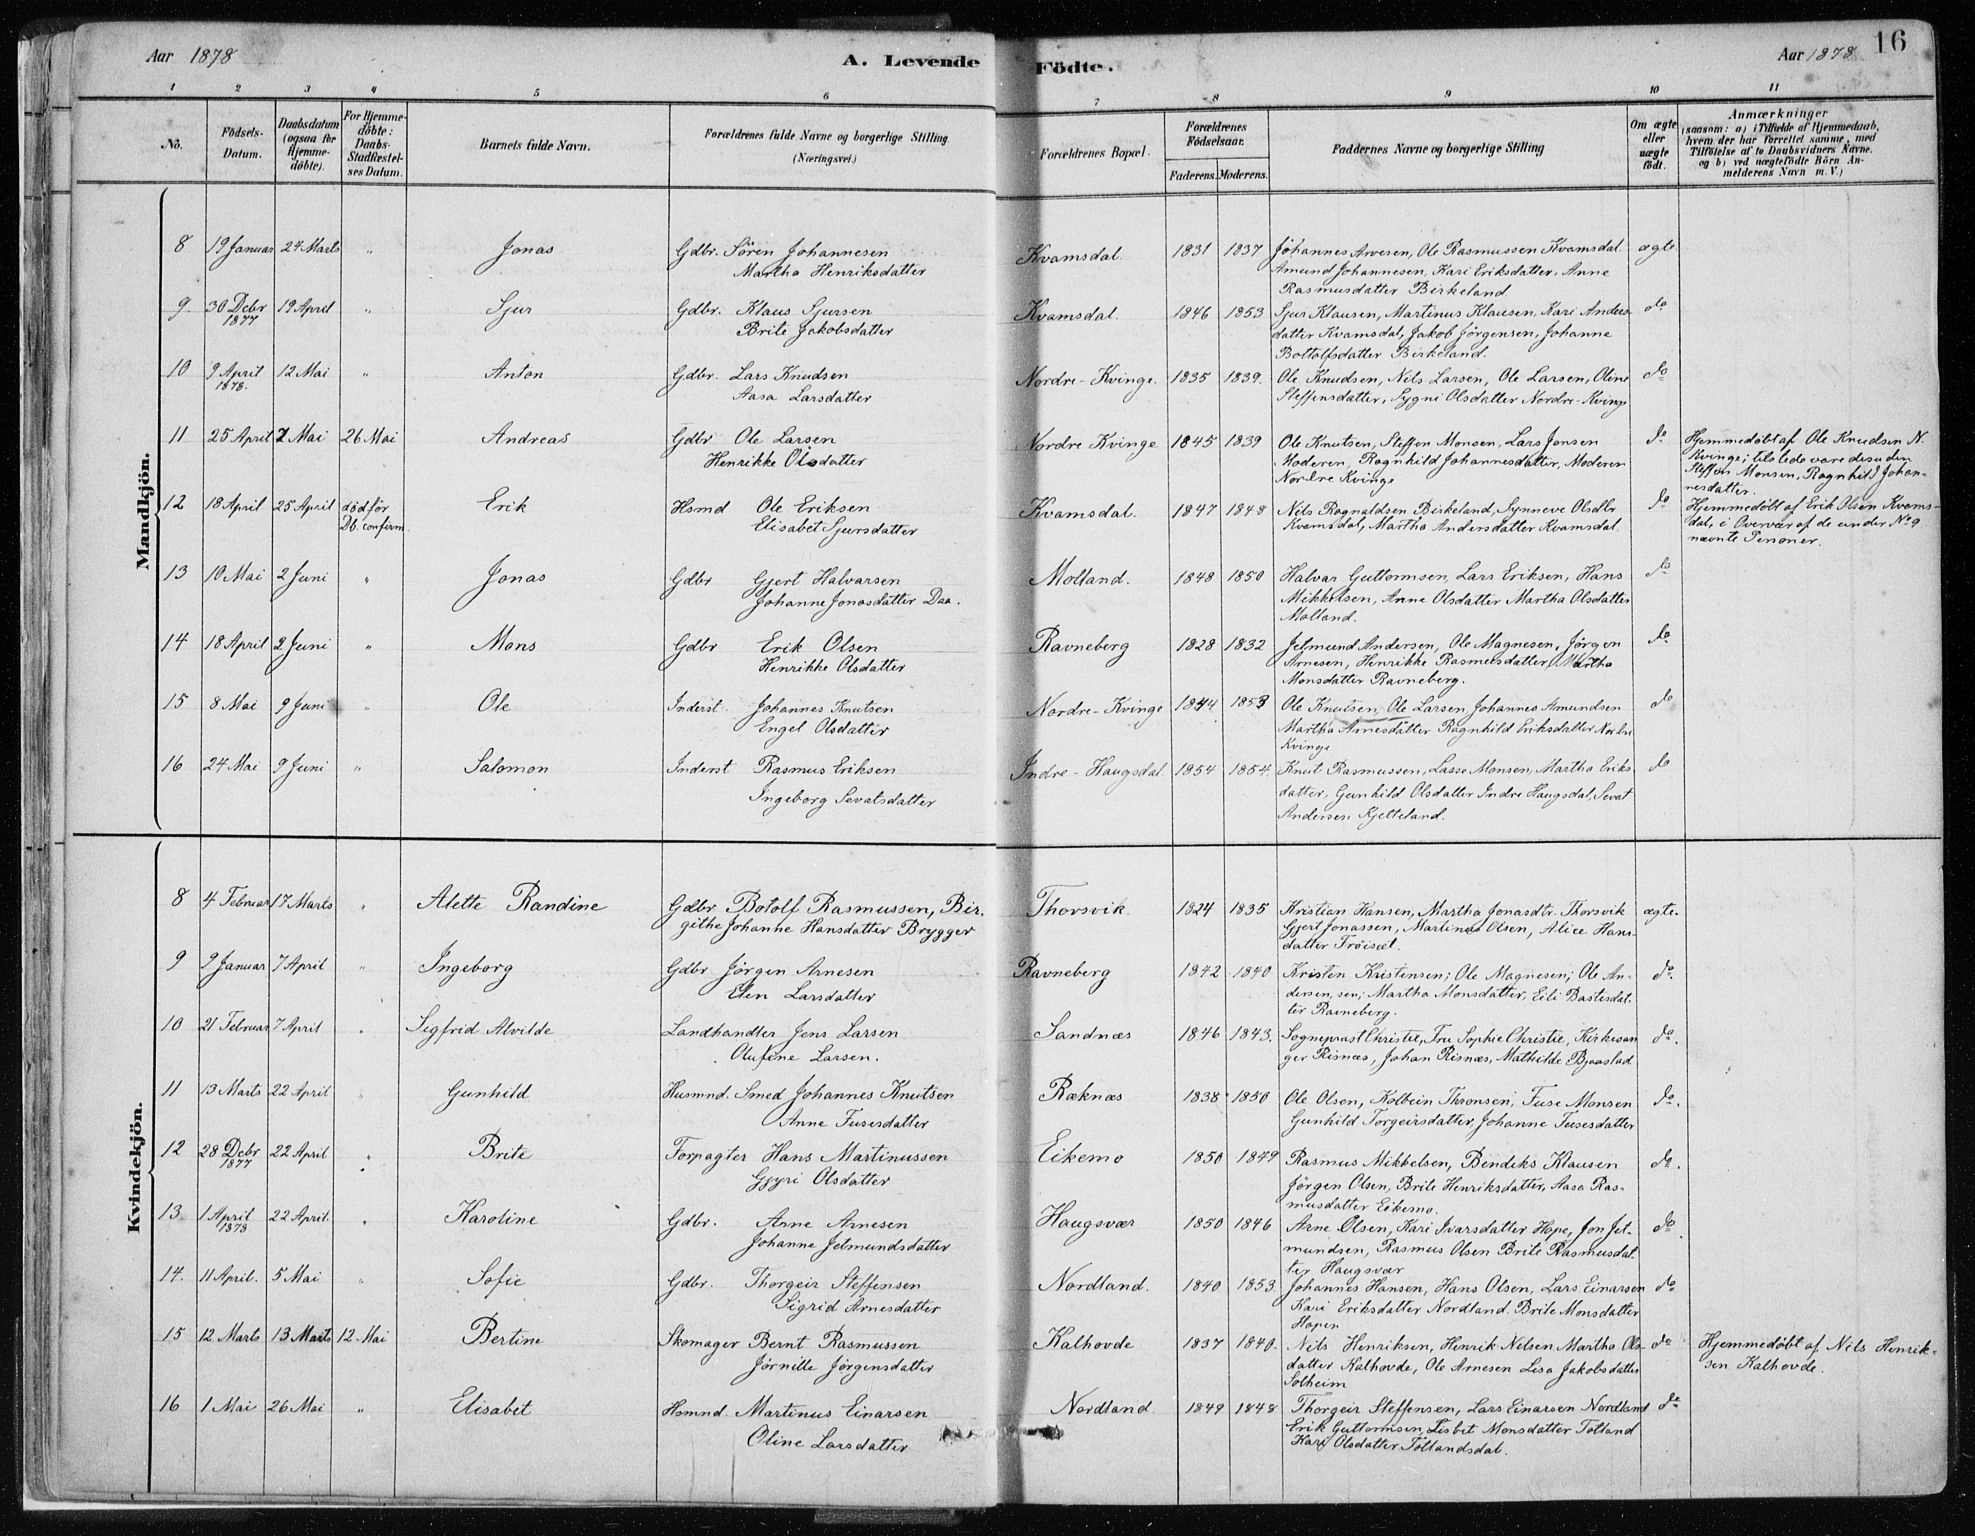 Aar 1878
A. Levende Födte.
Aar 1878
16
1 2 3 4 5 6 7 8 9 10 11
No.
Födsels-Datum.
Daabsdatum (ogsaa för Hjemme-döbte).
For Hjemme-döbte: Daabs-Stadfæstel-ses Datum.
Barnets fulde Navn.
Forældrenes fulde Navne og borgerlige Stilling (Næringsvei.)
Forældrenes Bopæl.
Forældrenes Födselsaar. Faderens. Moderens.
Faddernes Navne og borgerlige Stilling
Om ægte eller uægte födt.
Anmærkninger
(saasom: a) i Tilfælde af Hjemmedaab, hvem der har forrettet samme, med Tilföielse af to Daabsvidners Navne, og b) ved uægtefödte Börn An-melderens Navn m. V.)
Mandkjön.
8 19 Januar 24 Marts " Jonas Gdbr. Sören Johannesen Kvamsdal. 1831 1837 Johannes Arvesen, Ole Rasmussen Kvamsdal ægte.
Martha Henriksdatter Amund Johannesen, Kari Eriksdatter, Anne
Rasmusdatter Birkeland
9. 30 Debr 1877 19 April " Sjur Gdbr. Klaus Sjursen Kvamsdal. 1846 1853 Sjur Klausen, Martinus Klausen, Kari Anders- do
Brite Jakobsdatter datter Kvamsdal, Jakob Jörgensen, Johanne
Bottolfsdatter Birkeland.
10 9 April 1878. 12 Mai " Anton Gdbr. Lars Knudsen Nordre-Kvinge. 1835 1839. Ole Knudsen, Nils Larsen, Ole Larsen, Oline do
Aasa Larsdatter Steffensdatter, Sygni Olsdatter Nordre-Kvinge
11 25 April 2 Mai 26 Mai Andreas Gdbr Ole Larsen Nordre Kvinge 1845 1839 Ole Knutsen, Steffen Monsen, Lars Jensen do Hjemmedöbt af Ole Knudsen N.
Henrikke Olsdatter Moderen, Ragnhild Johannesdatter, Moderen Kvinge; tilstede vare desuden
Nordre Kvinge Steffen Monsen, Ragnhild Johan-
nesdatter.
12 18 April 25 April död för Db. confirm. Erik Hsmd Ole Eriksen Kvamsdal. 1847 1848 Nils Ragnaldsen Birkeland, Synneve Olsdtr do Hjemmedöbt af Erik Olsen Kvams-
Elisabet Sjursdatter Kvamsdal, Martha Andersdatter Kvamsdal. dal, i Overvær af de under No 9
nævnte Personer.
13 10 Mai 2 Juni " Jonas Gdbr Gjert Halvarsen Molland. 1848 1850 Halvar Guttormsen, Lars Eriksen, Hans do
Johanne Jonasdatter Daa. Mikkelsen, Anne Olsdatter Martha Olsdatter
Molland.
14 18 April 2 Juni " Mons Gdbr Erik Olsen Ravneberg 1828 1832 Jetmund Andersen, Ole Magnesen, Jörgen do
Henrikke Olsdatter Arnesen, Henrikke Rasmusdatter, Martha
Monsdatter Ravneberg.
15 8 Mai 9 Juni " Ole Inderst Johannes Knutsen Nordre-Kvinge 1844 1853 Ole Knutsen, Ole Larsen Johannes Amundsen do
Engel Olsdatter Martha Arnesdatter Ragnhild Eriksdatter Nordre
Kvinge
16 24 Mai 9 Juni " Salomon Inderst Rasmus Eriksen Indre-Haugsdal. 1854 1854. Knut Rasmussen, Lasse Monsen, Martha Eriks- do
Ingeborg Sevatsdatter datter, Gunhild Olsdatter Indre Haugsdal, Sevat
Andersen Kjelteland.
Kvindekjön.
8 4 Februar 17 Marts " Alette Randine Gdbr Botolf Rasmussen, Bir- Thorsvik. 1824 1835 Kristian Hansen, Martha Jonasdtr. Thorsvik ægte.
githe Johanne Hansdatter Brygger Gjert Jonassen, Martines Olsen, Alice Hans-
datter Tröiset.
9 9 Januar 7 April " Ingeborg Gdbr Jörgen Arnesen Ravneberg 1842 1840 Kristen Kristensen; Ole Magnesen; Ole An- do.
Elen Larsdatter dersen, sen; Martha Monsdatter, Eili Bastesdat-
ter Ravneberg.
10 21 Februar 7 April " Sigfrid Alvilde Landhandler Jens Larsen Sandnæs 1846 1843. Sogneprast Christie, Fru Sophie Christie, Kirkesan- do.
Olufine Larsen. ger Risnæs, Johan Risnæs, Mathilde Bjaastad
11 13 Marts 22 April " Gunhild Husmnd. Smed Johannes Knutsen Ræknæs 1838 1850 Ole Olsen, Kolbein Thronsen, Fuse Monsen do.
Anne Fusesdatter Gunhild Torgeirsdatter, Johanne Fusesdatter
12 28 Debr 1877 22 April " Brite Forpagter Hans Martinussen Eikemo 1850 1849 Rasmus Mikkelsen, Bendiks Klausen do.
Gjyri Olsdatter Jörgen Olsen, Brite Henriksdatter, Aasa Ras-
musdatter Eikemo.
13 1 April 1878 22 April. " Karoline Gdbr. Arne Arnesen Haugsvær 1850 1846 Arne Olsen, Kari Ivarsdatter Hope, Jon Jet- do.
Johanne Jetmundsdatter mundsen, Rasmus Olsen Brite Rasmusdat-
ter Haugsvær
14. 11 April. 5 Mai " Sofie Gdbr. Thorgeir Steffensen Nordland. 1840 1853. Johannes Hansen, Hans Olsen, Lars Einarsen do
Sigrid Arnesdatter Kari Eriksdatter Nordland. Brite Monsdatter
Hopen
15 12 Marts 13 Marts 12 Mai Bertine Skomager Bernt Rasmussen Kalhovde 1837 1840. Nils Henriksen, Henrik Nelsen Martha Ols- do Hjemmedöbt af Nils Henrik-
Jörnille Jörgensdatter datter Kalhovde, Ole Arnesen Lisa Jakobsdatter sen Kalhovde.
Solheim
16 1 Mai 26 Mai " Elisabet Hsmnd. Martinus Einarsen Nordland 1849 1848 Thorgeir Steffensen, Lars Einarsen Nordland do
Oline Larsdatter Erik Guttormsen, Lisbet Monsdatter Totland
Kari Olsdatter Totlandsdal.